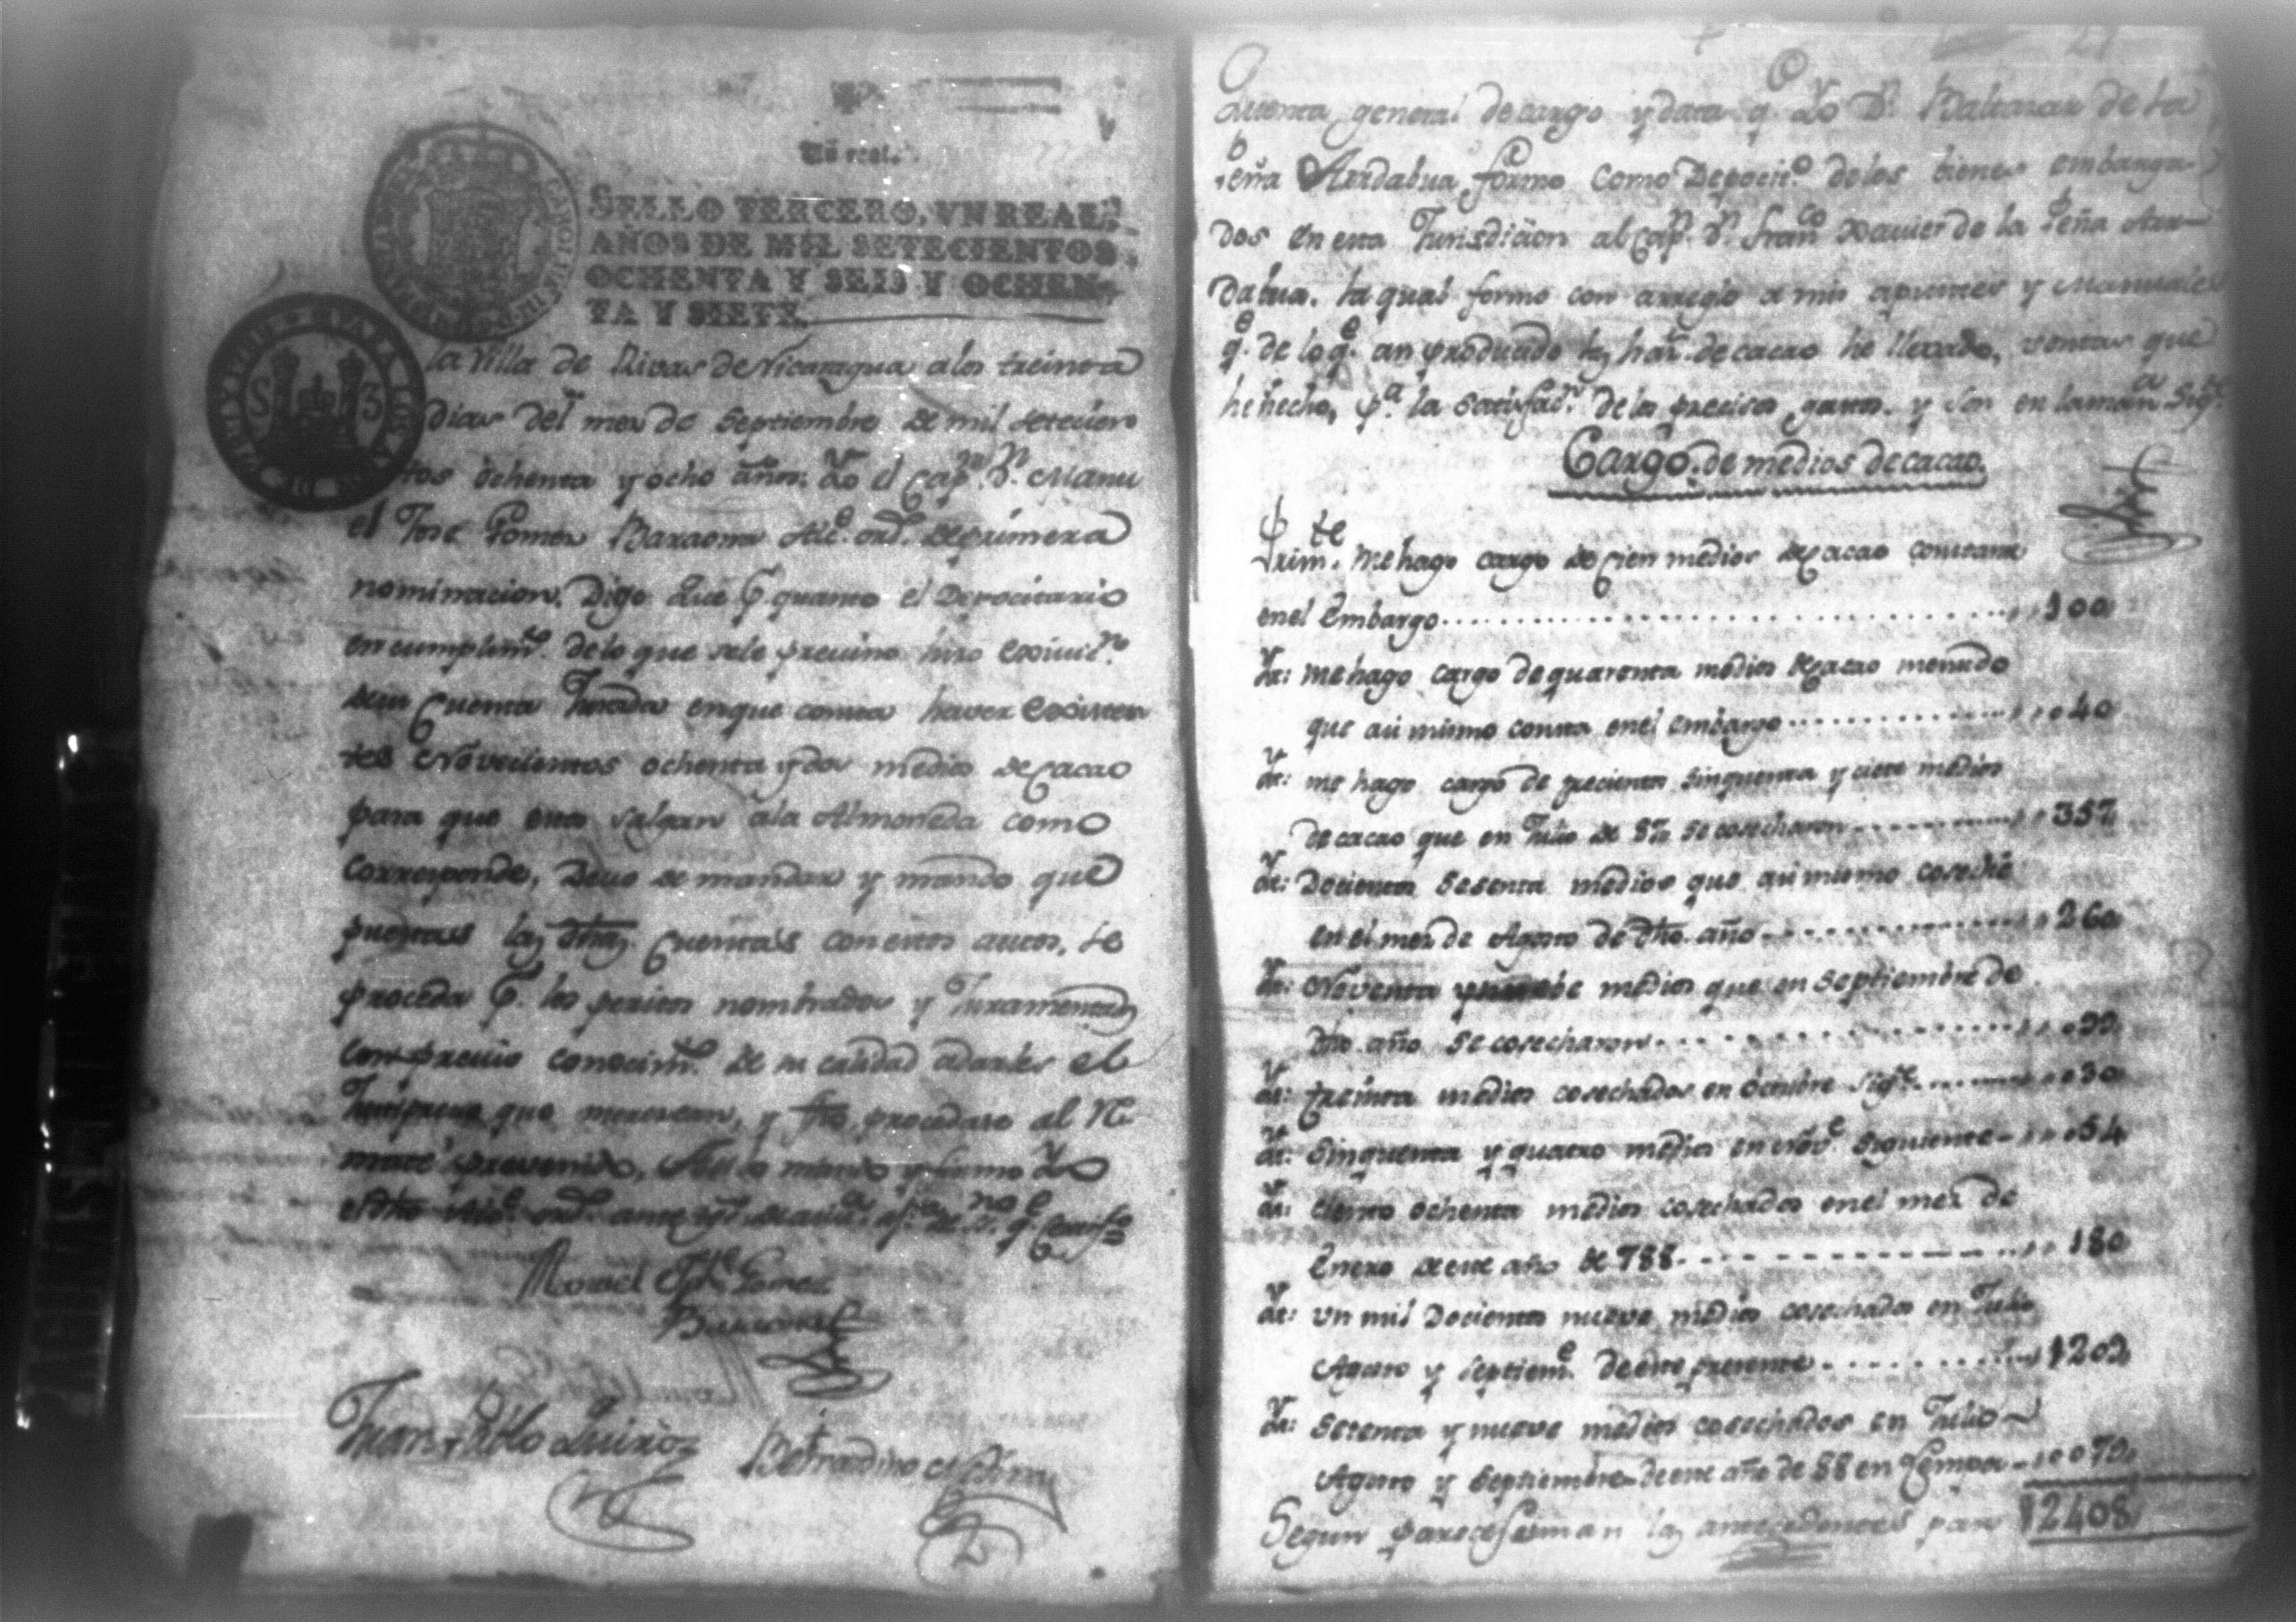 Un real.
SELLO TERCERO, VN REAL,
AÑOS DE MIL SETECIENTOS
OCHENTA Y SEIS Y OCHEN-
TA Y SIETE.
la Villa de Rivas de Nicaragua a los treinta
dias del mes de Septiembre de mil setecien
tos ochenta y ocho años. Yo el Capn. Dn. Manu
el Jose Gomez Baraona Alce. ordo. de primera
nominacion. Digo que p quanto el Depocitario
en cumplimto. de lo que sele previno hizo
de su Cuenta Jurada en que consta haver existen
tes Novecientos ochenta y dos medios de Cacao
para que estos salgan ala Almoneda como
corresponde, Devo de mandar y mando que
puestas las dhas. Cuentas con estos autos, se
proceda p. los peritos nombrados y Juramentados
con previo conocimto. de su calidad adarles el
que merescan, y fho procedase al Re
mate prevenido, Assi lo mando y firmo Yo
el dho Alce. ordo.
Manuel Jph. Gomez
Baraona
Juan Pablo Quiroz
Quenta general de cargo y data q. Yo Dn. Baltazar de la
Peña Arrdabua, formo como Deposito. de los bienes embarga-
dos en esta Jurisdiccion al Capn. Dn. Franco. Xavier de la Peña Arr-
dabua. la qual formo con arreglo a mis apuntes y manuales
qe. de lo qe. an producido las hazs. de cacao he llevado, ventas que
he hecho, pa. la satisfacn. de lo preciso, gasto. y son en la mana. sigte.
Cargo. de medios de cacao.
Primte. Me hago cargo de cien medios de cacao constante
en el Embargo 100
Yt: me hago cargo de quarenta medios de cacao menudo
que asi mismo consta en el embargo 040
Yt: me hago cargo de trecientos sinquenta y ciete medios
de cacao que en Julio de 87 se cosecharon 357
Yt: Docientos sesenta medios que asi mismo coseché
en el mes de Agosto de dho. año 260
Yt: Noventa y nuebe medios que en Septiembre de
dho. año se cosecharon 099
Yt: treinta medios cosechados en octubre sigte. 030
Yt: Sinquenta y quatro medios en nove. siguiente 054
Yt: ciento ochenta medios cosechados en el mes de
Enero de este año de 788 180
Yt: un mil Docientos nueve medios cosechados en Julio
Agosto y septieme. de este presente 1209
Yt: Setenta y nueve medios cosechados en Julio
Agosto y Septiembre de este año de 88 en 079
Segun parece 2408